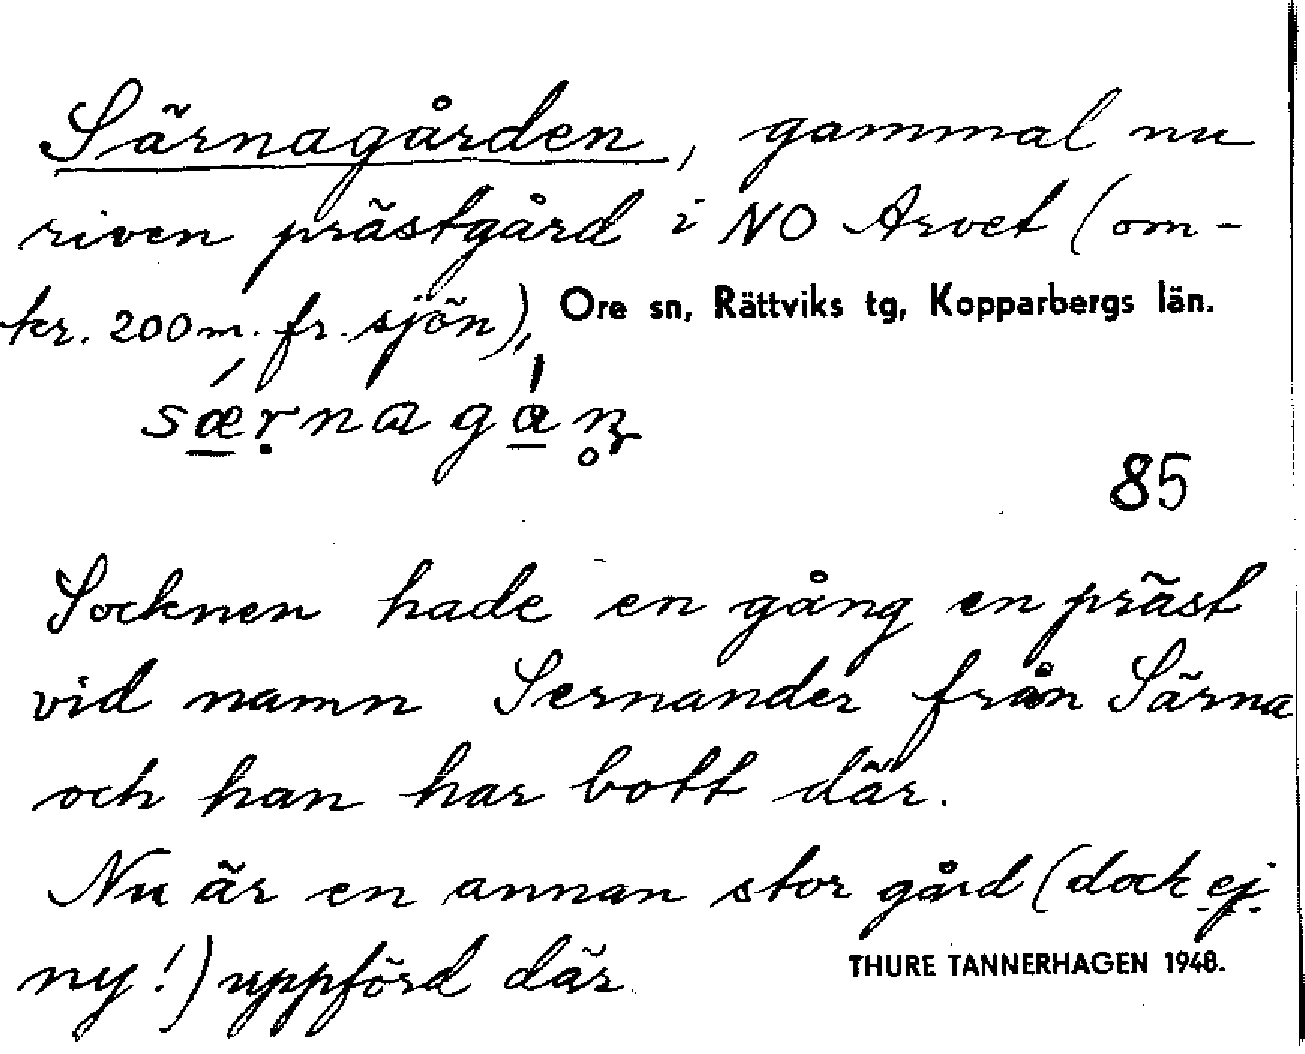 Särnagården, gammal nu
riven prästgård i NO Arvet (om-
kr. 200 m. fr. sjön), Ore sn, Rättviks tg, Kopparbergs län.
sǽ̲ṛnagá̲n̥
85
Socknen hade en gång en präst
vid namn Sernander från Särna
och han har bott där.
Nu är en annan stor gård (dock ej
ny!) uppförd där
THURE TANNERHAGEN 1948.